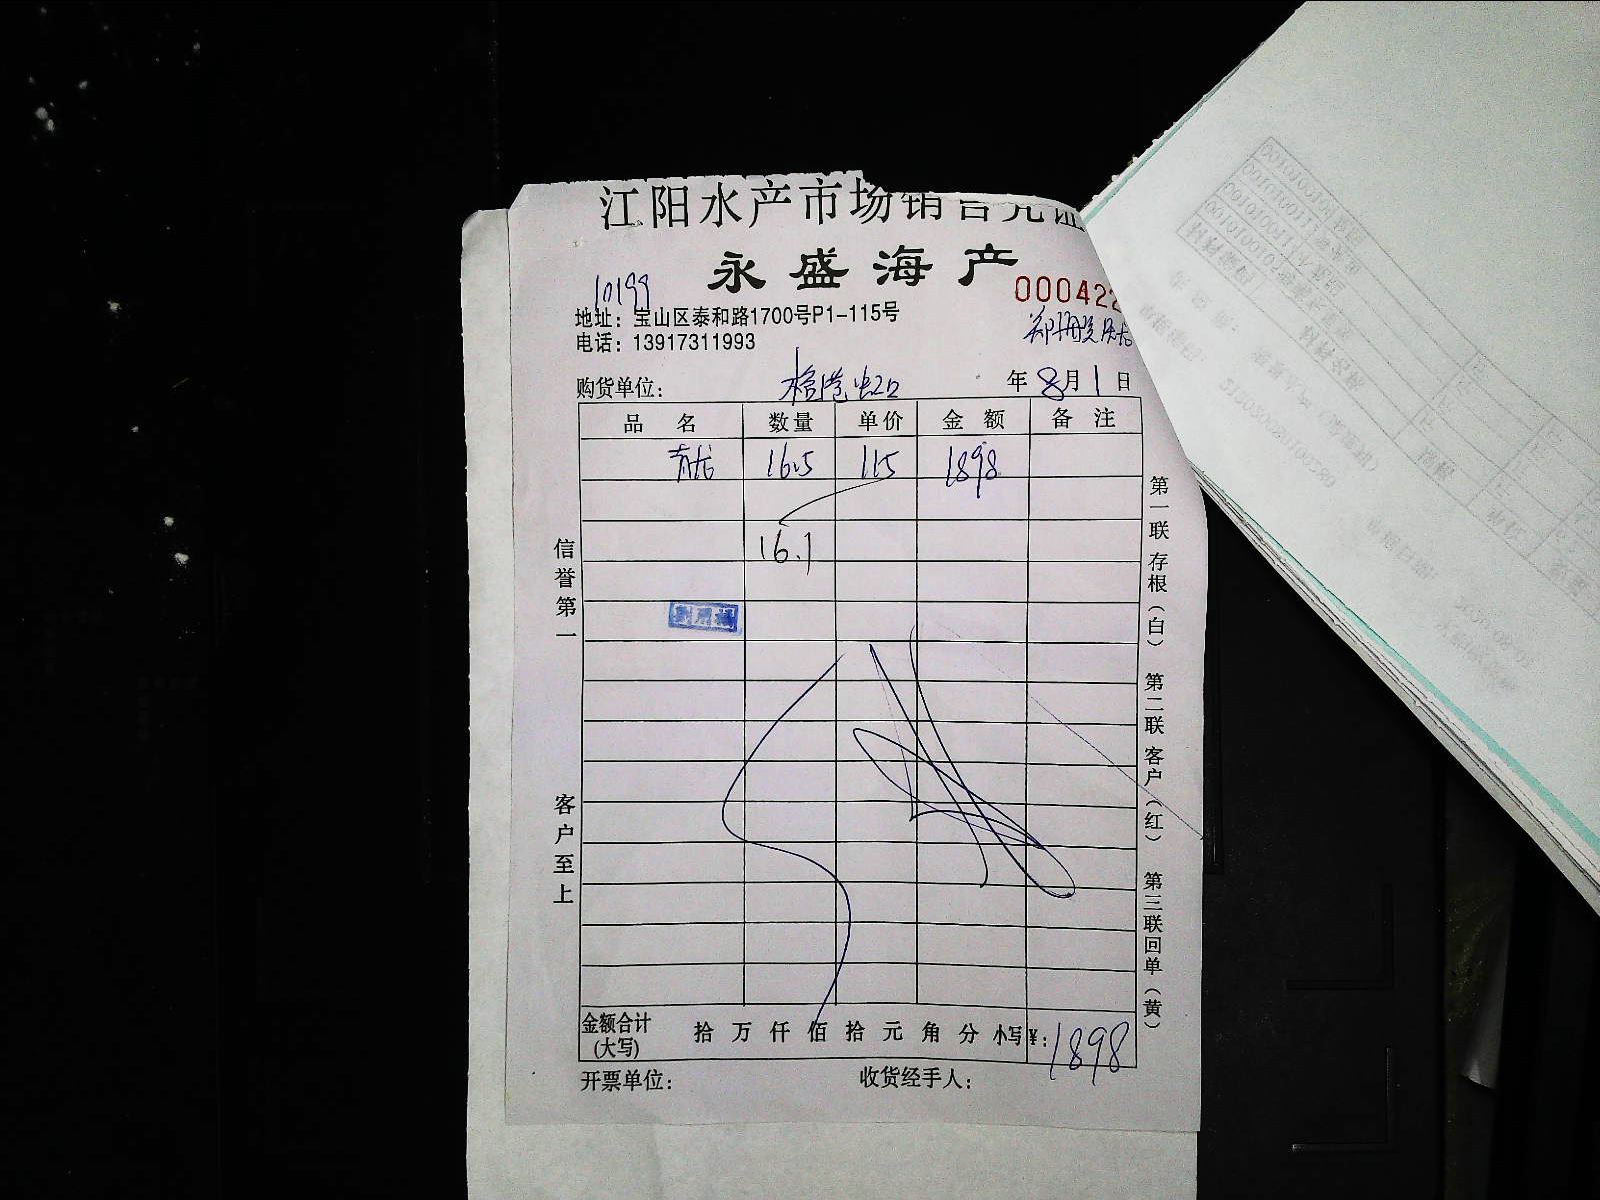 江阳水产市场销售凭证
永盛海产
10199
000422
地址：宝山区泰和路1700号P1-115号
电话：13917311993
购货单位： 年 8月 1日
品 名 数量 单价 金 额 备 注
青龙 16.5 115 1898
16.1
信誉第一
客户至上
第一联 存根（白） 第二联 客户（红） 第三联回单（黄）
金额合计 拾 万 仟 佰 拾 元 角 分 小写¥：1898
(大写)
开票单位： 收货经手人：